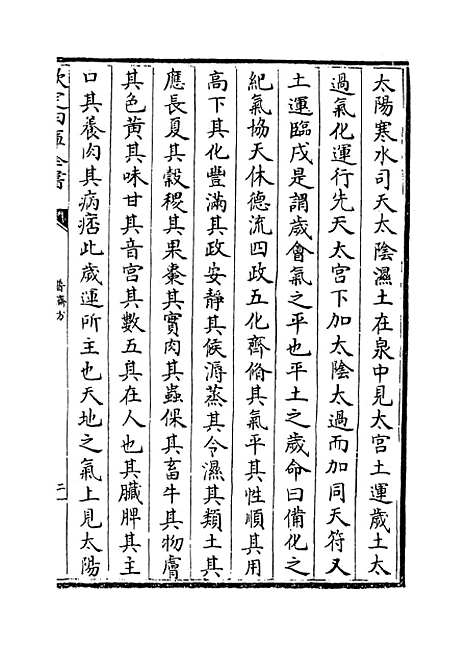 太陽寒水司天太陰濕土在泉中見太宮土運歲土太
過氣化運行先天太宮下加太陰太過而加同天符又
土運臨戌是謂歲會氣之平也平土之歲命曰備化之
紀氣協天休德流四政五化齊脩其氣平其性順其用
高下其化豐滿其政安靜其候溽蒸其令濕其類土其
應長夏其穀稷其果棗其實肉其蟲倮其畜牛其物膚
其色黄其味甘其音宮其數五其在人也其臟脾其主
口其養肉其病痞此歲運所主也天地之氣上見太陽
欽定四庫全書
普濟方
二